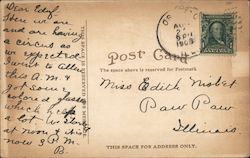 Dear Edyth
Here we are
and are having
a circus as
we expected
I went to Allen
this A.M. &
got some
colored glasses
which help
a lot. We
at now & it is
now 3 P.M.
B.
Post Card
The space above is reserved for Postmark.
AUG
6 PM
1908
Miss Edith Nisbet
Paw Paw
Illinois.
THIS SPACE FOR ADDRESS ONLY.